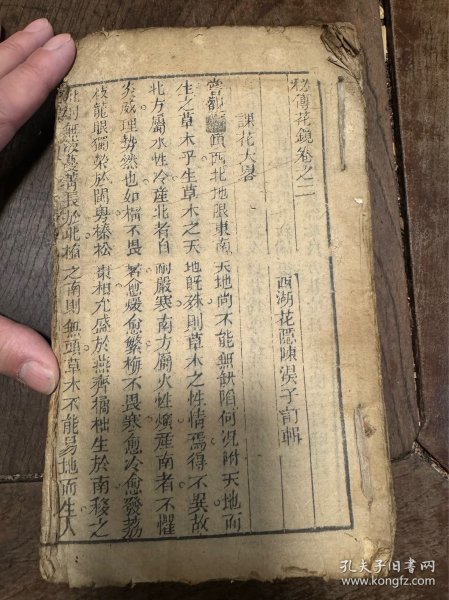 秘傳花鏡卷之二
西湖花隱陳淏子訂輯
課花大畧
嘗觀天傾西北地限東南天地尚不能無缺陷何況附天地而
生之草木乎生草木之天地旣殊則草木之性情焉得不異故
北方屬水性冷產北者自耐嚴寒南方屬火性燠產南者不懼
炎威理勢然也如榴不畏暑愈煖愈繁梅不畏寒愈冷愈發荔
枝龍眼獨榮於閩粵榛松棗柏尤盛於燕齊橘柚生於南移之
北則無液蔓菁長於北植之南則無頭草木不能易地而生人
孔夫子旧书网
www.kongfz.com